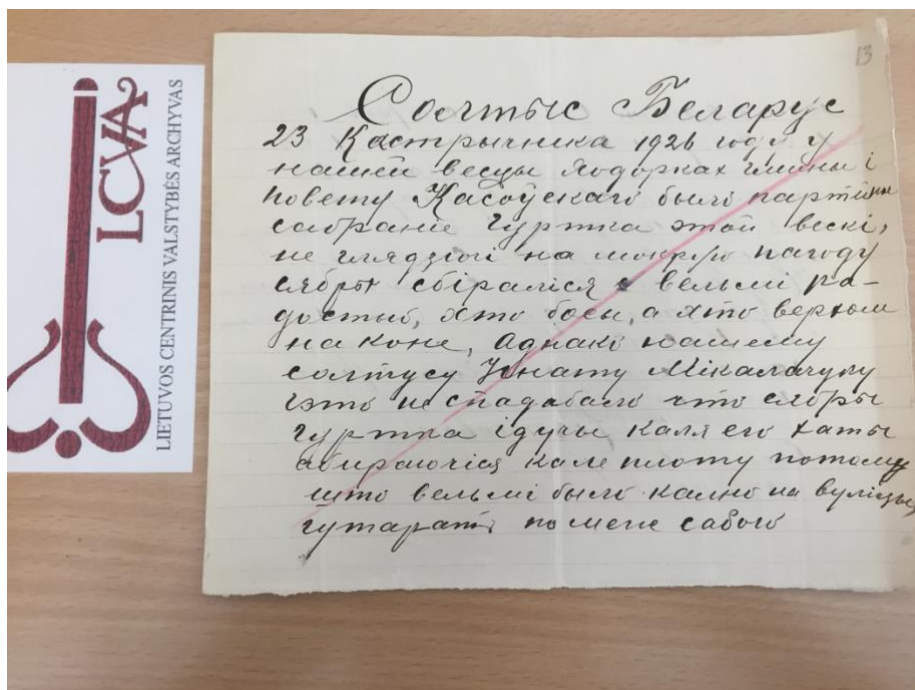 LCVA
LIETUVOS CENTRINIS VALSTYBĖS ARCHYVAS
13
Солтыс Беларус
23 Кастрычника 1926 году у
нашей весцы Ягодорках гмины і
повету Касоўскаго было партийна
собрание Гуртка этой вескі,
не глядзючі на мокрую пагоду
сябры сбіраліся вельмі ра-
достыо, хто босы, а хто верхом
на коне, Однакі нашему
солтусу Ігнату Мікалачуку
гэто не спадабало что сябры
гуртка ідучы каля его хаты
абираючісь кале плоту потому
што вельмі было кално на вуліцы,
гутараті помеге сабою